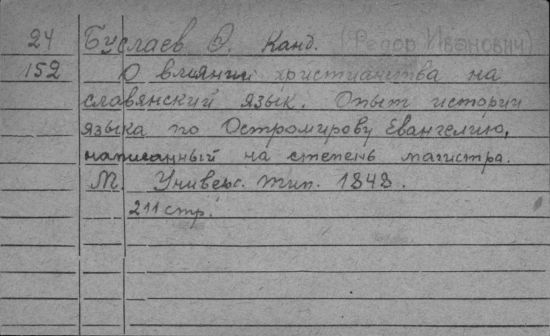 24 Буслаев Ф. Канд. (Федор Иванович)
152 О влиянии христианства на
славянский язык. Опыт истории
языка по Остромирову Евангелию,
написанный на степень магистра.
М. Универс. тип. 1848.
211 стр.